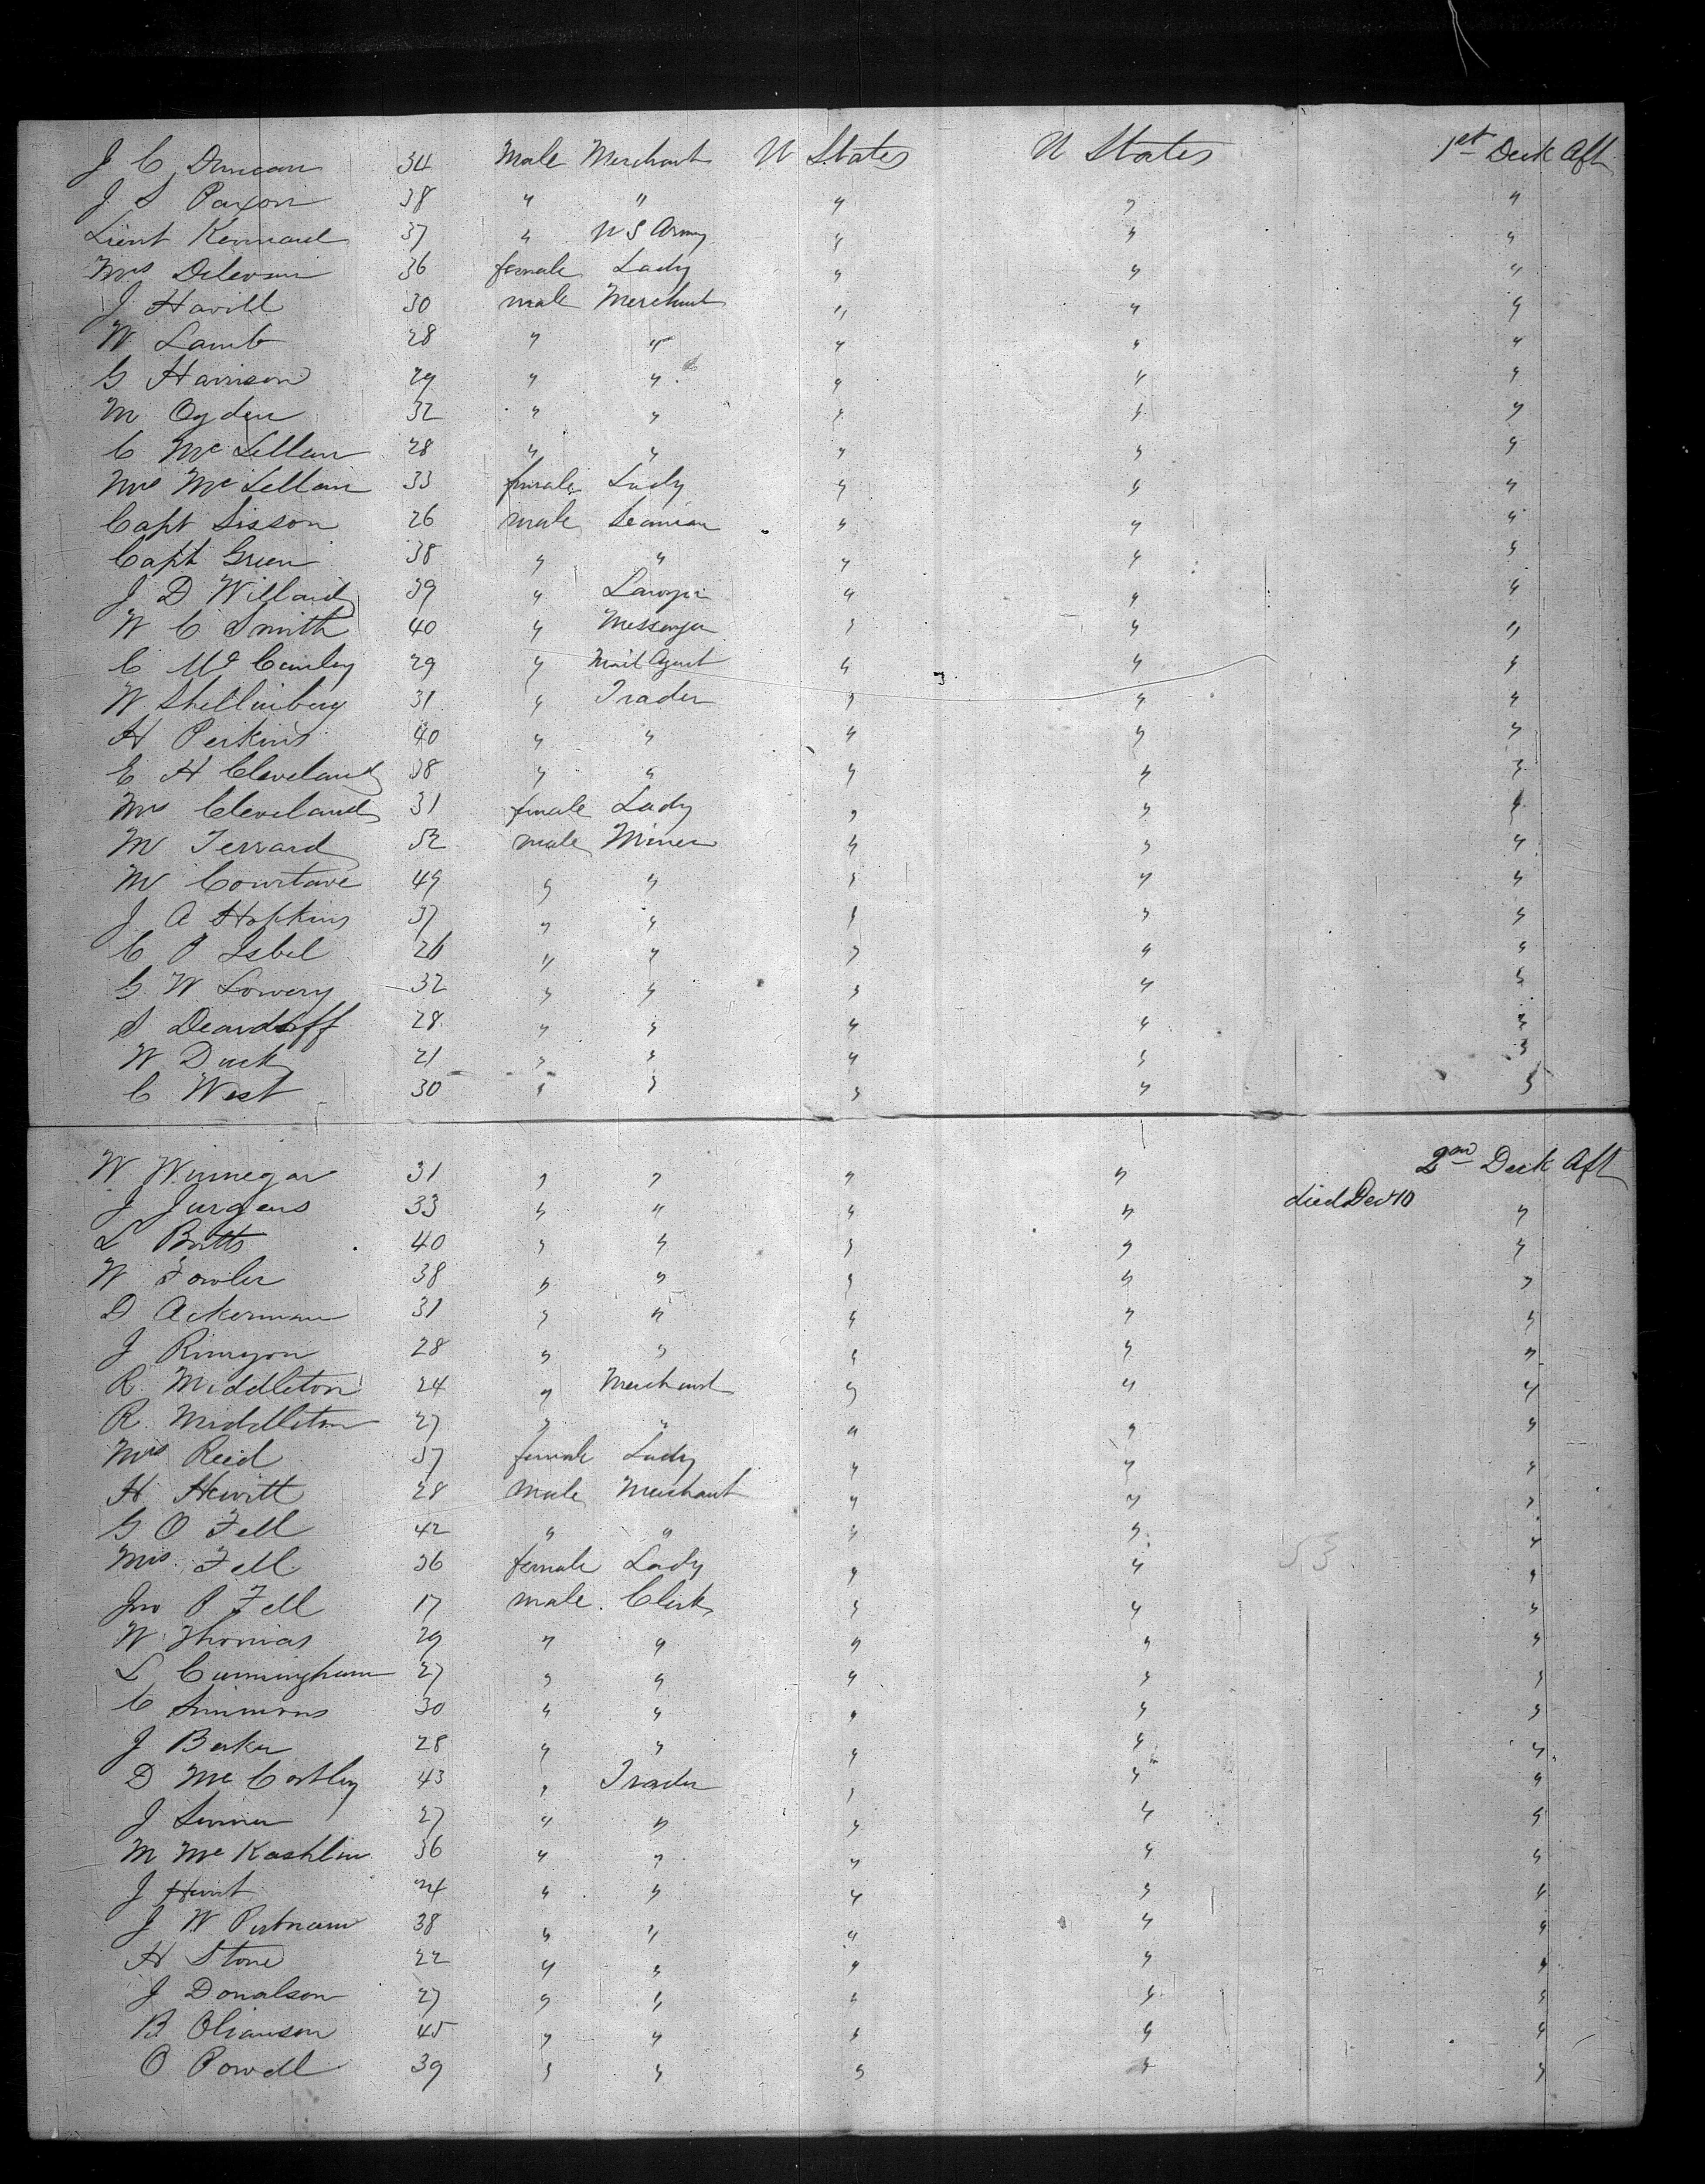 J C Duncan 34 Male Merchant U States U States 1st Deck Aft
J S Paxon 38 " " " " "
Lieut Kennard 37 " U S Army " " "
Mrs Delevan 36 female Lady " " "
J Havill 30 male Merchant " " "
W Lamb 28 " " " " "
G Harrison 29 " " " " "
M Ogden 32 " " " " "
C McLellan 28 " " " " "
Mrs McLellan 33 female Lady " " "
Capt Sisson 26 male Seaman " " "
Capt Green 38 " " " " "
J D Willard 39 " Lawyer " " "
W C Smith 40 " Messenger " " "
C Mc 29 " Mail Agent " " "
W Shellinberg 31 " Trader " " "
H Perkins 40 " " " " "
E H Cleveland 38 " " " " "
Mrs Cleveland 31 female Lady " " "
M Terrard 52 male Miner " " "
M Courtave 49 " " " " "
J A Hopkins 37 " " " " "
C P Isbel 26 " " " " "
G W Lowery 32 " " " " "
S Deardorff 28 " " " " "
W Duck 21 " " " " "
C West 30 " " " " "
W Winnegar 31 " " " " 2nd Deck Aft
J Jurgens 33 " " " " died Dec 10 "
L Britts 40 " " " " "
W Fowler 38 " " " " "
D Ackerman 31 " " " " "
J Runyon 28 " " " " "
R Middleton 24 " Merchant " " "
R Middleton 27 " " " " "
Mrs Reid 37 female Lady " " "
H Hewitt 28 male Merchant " " "
G O Fell 42 " " " " "
Mrs Fell 36 female Lady " " 53 "
Jno P Fell 17 male Clerk " " "
W Thomas 29 " " " " "
L Cunningham 27 " " " " "
C Simmons 30 " " " " "
J Barker 28 " " " " "
D McCartley 43 " Trader " " "
J 27 " " " " "
M McKashlin 36 " " " " "
J Hunt 24 " " " " "
J W Putnam 38 " " " " "
H Stone 22 " " " " "
J Donalson 27 " " " " "
B Olianson 45 " " " " "
O Powell 39 " " " " "